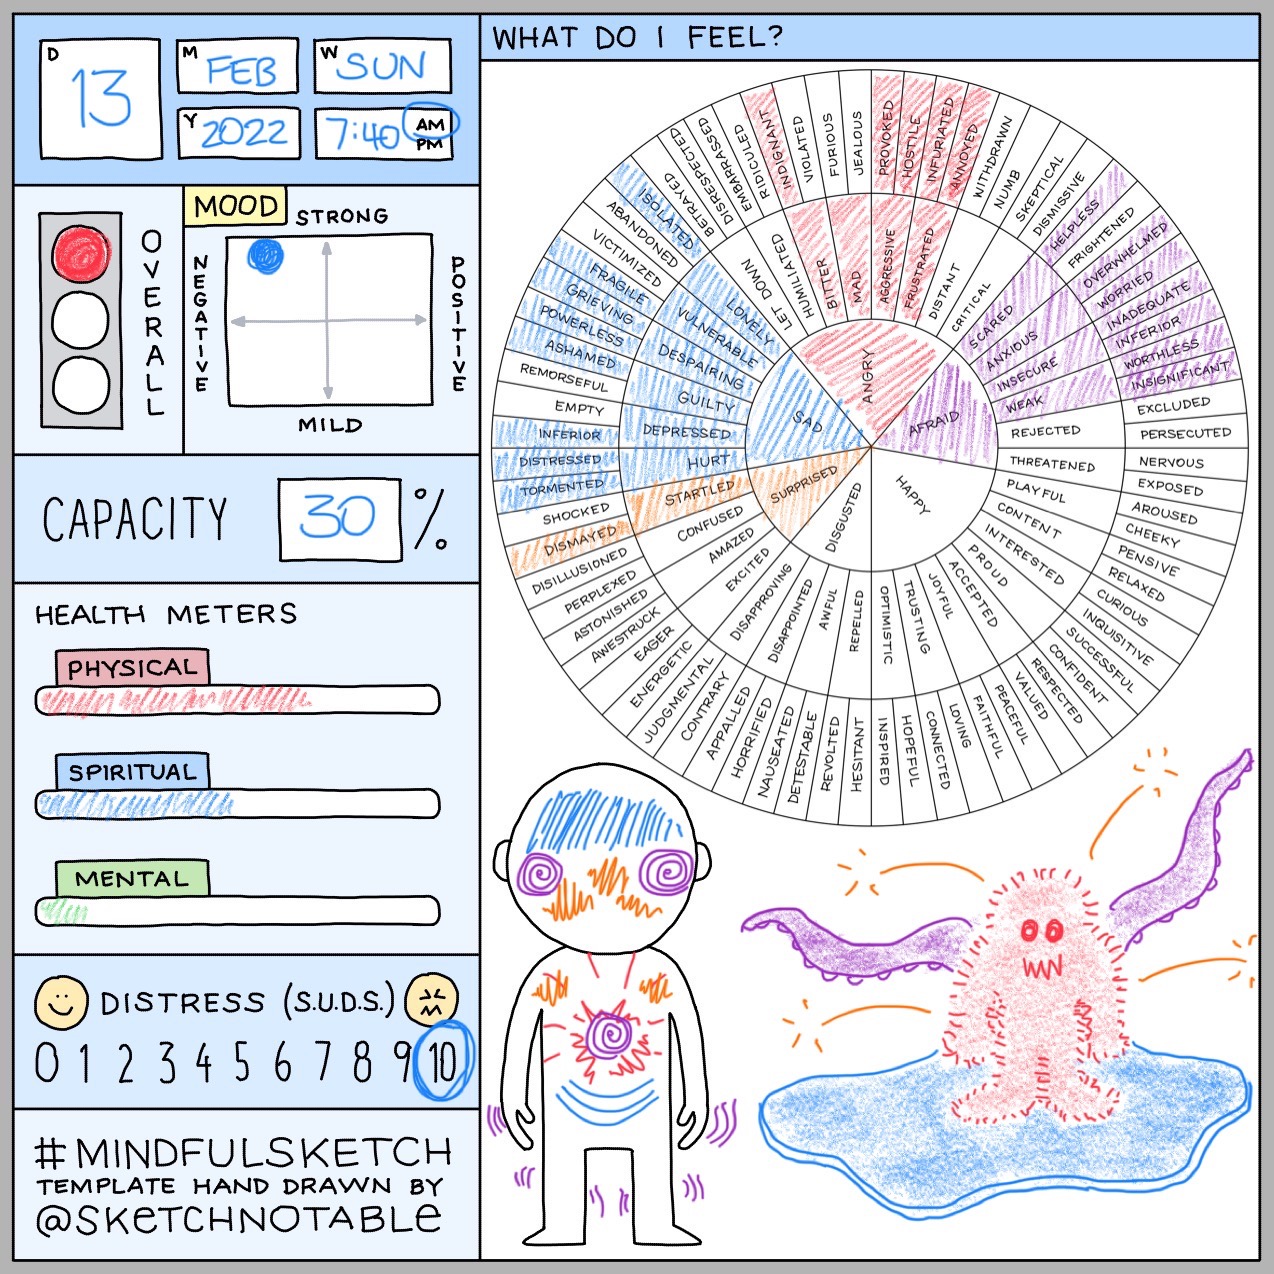 D 13
M FEB
W SUN
Y 2022
7:40 AM
PM
MOOD
OVERALL
STRONG
NEGATIVE
POSITIVE
MILD
CAPACITY 30 %
HEALTH METERS
PHYSICAL
SPIRITUAL
MENTAL
DISTRESS (S.U.D.S.)
0 1 2 3 4 5 6 7 8 9 10
#MINDFULSKETCH
TEMPLATE HAND DRAWN BY
@SKETCHNOTABLE
WHAT DO I FEEL?
ANGRY
AFRAID
HAPPY
DISGUSTED
SURPRISED
SAD
LET DOWN
HUMILIATED
BITTER
MAD
AGGRESSIVE
FRUSTRATED
DISTANT
CRITICAL
SCARED
ANXIOUS
INSECURE
WEAK
REJECTED
THREATENED
PLAYFUL
CONTENT
INTERESTED
PROUD
ACCEPTED
JOYFUL
TRUSTING
OPTIMISTIC
REPELLED
AWFUL
DISAPPOINTED
DISAPPROVING
EXCITED
AMAZED
CONFUSED
STARTLED
HURT
DEPRESSED
GUILTY
DESPAIRING
VULNERABLE
LONELY
BETRAYED
DISRESPECTED
EMBARRASSED
RIDICULED
INDIGNANT
VIOLATED
FURIOUS
JEALOUS
PROVOKED
HOSTILE
INFURIATED
ANNOYED
WITHDRAWN
NUMB
SKEPTICAL
DISMISSIVE
HELPLESS
FRIGHTENED
OVERWHELMED
WORRIED
INADEQUATE
INFERIOR
WORTHLESS
INSIGNIFICANT
EXCLUDED
PERSECUTED
NERVOUS
EXPOSED
AROUSED
CHEEKY
PENSIVE
RELAXED
CURIOUS
INQUISITIVE
SUCCESSFUL
CONFIDENT
RESPECTED
VALUED
PEACEFUL
FAITHFUL
LOVING
CONNECTED
HOPEFUL
INSPIRED
HESITANT
REVOLTED
DETESTABLE
NAUSEATED
HORRIFIED
APPALLED
CONTRARY
JUDGMENTAL
ENERGETIC
EAGER
AWESTRUCK
ASTONISHED
PERPLEXED
DISILLUSIONED
DISMAYED
SHOCKED
TORMENTED
DISTRESSED
INFERIOR
EMPTY
REMORSEFUL
ASHAMED
POWERLESS
GRIEVING
FRAGILE
VICTIMIZED
ABANDONED
ISOLATED